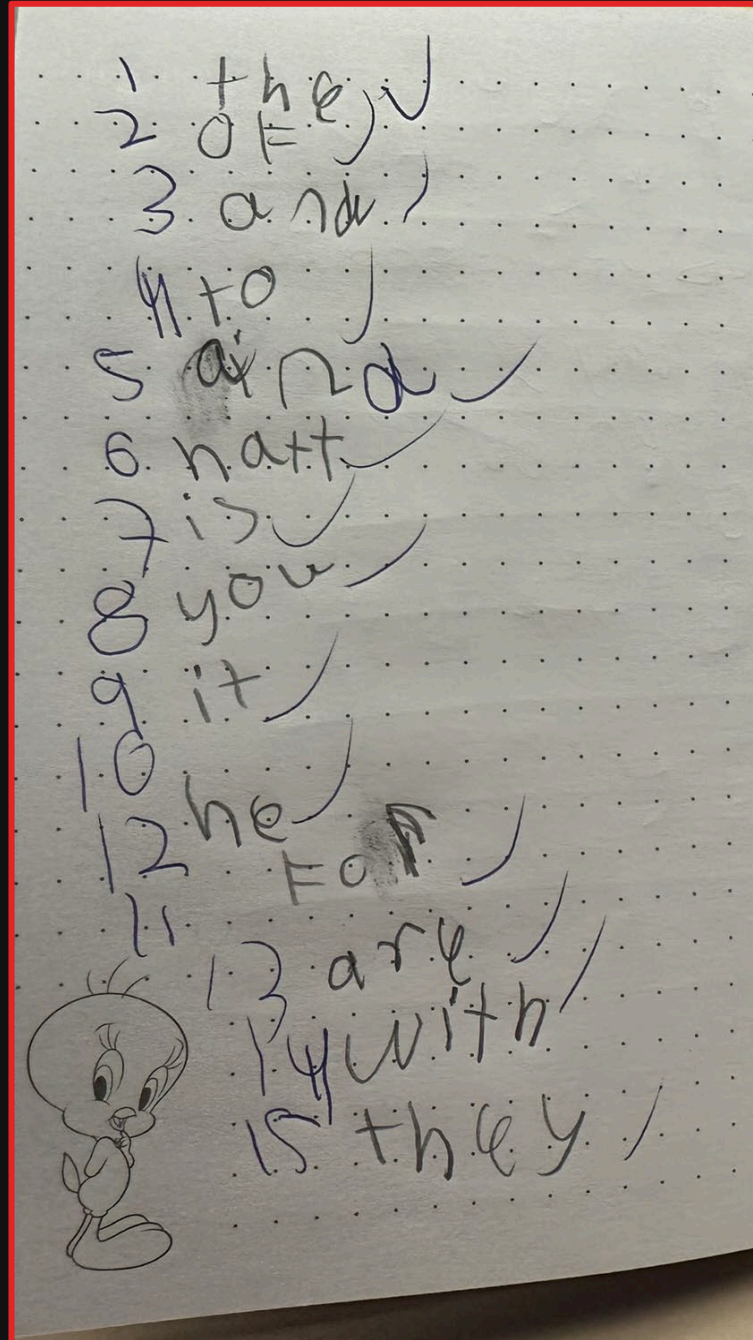 1 the
2 OF
3 and
4 to
5 and
6 hatt
7 is
8 you
9 it
10
he
12
FOr
11
13 are
14 with
15 they